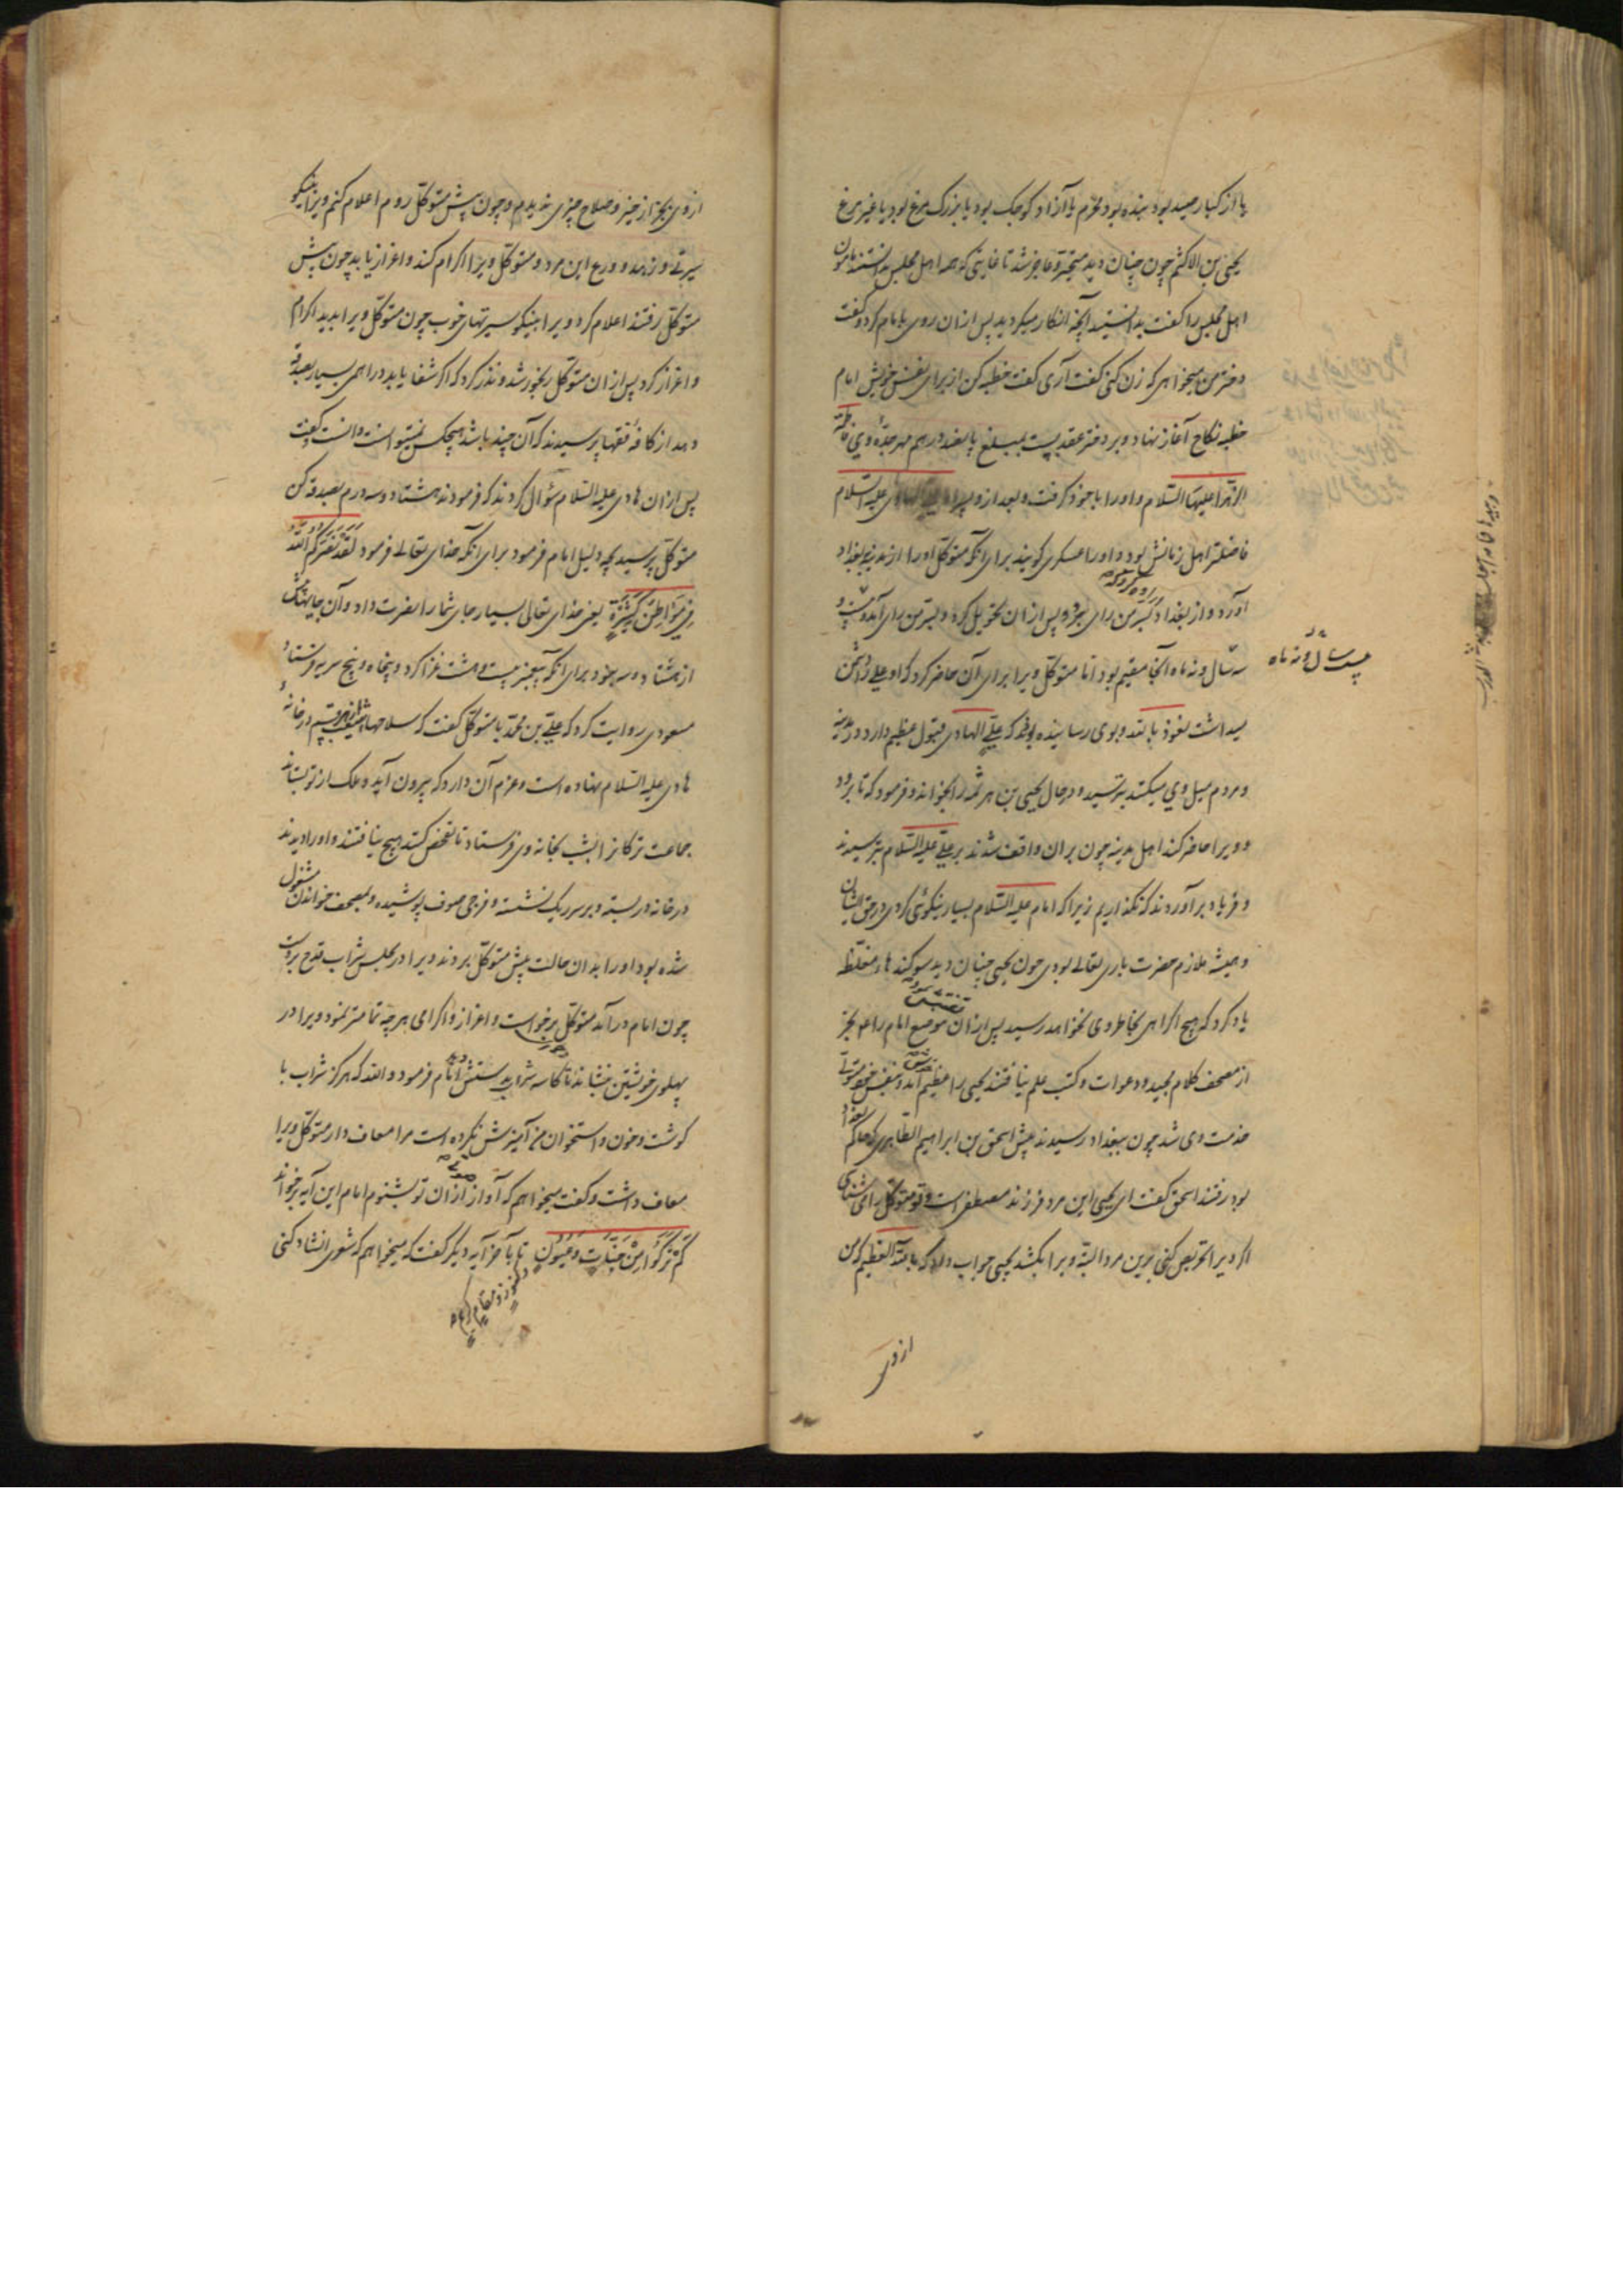 یا از کبار صید بود بنده بود محرم یا آزاد کوچک بود یا بزرک مرغ بود یا غیر مرغ
یحیی بن الاکثم چون چنان دید متحیر و عاجز شد تا غایتی که همه اهل مجلس بدانستند مامون
اهل مجلس را کفت بدانستید آنچه انکار میکردید پس ازان روی بامام کرد و کفت
دختر من میخواهی که زن کنی کفت آری کفت خطبه کن از برای نفس خویش امام
خطبه نکاح آغاز نهاد و بر دختر عقد بست بمبلغ پانصد درهم مهر جدّهٔ وی فاطمة
الزهرا علیها السّلام و او را با خود کرفت و بعد از و علیه السّلام
فاضلتر اهل زمانش بود و او را عسکری کویند برای آنکه متوکّل او را از مدینه ببغداد
آورد و از بغداد بسرّ من رای برد و پس ازان تحویل کرد و بسرّ من رای آمد و بیست و
سه سال و نه ماه آنجا مقیم بود امّا متوکّل ویرا برای آن حاضر کرد که او علی را دشمن
بیست سال و نه ماه
میداشت نعوذ بالله و بوی رسانیده بودند که علیّ الهادی قبول عظیم دارد در مدینه
و مردم میل وی میکنند بترسید و در حال یحیی بن هرثمه را بخواند و فرمود که تا برود
و ویرا حاضر کند اهل مدینه چون بران واقف شدند بر علی علیه السّلام بترسیدند
و فریاد برآوردند که نکذاریم زیرا که امام علیه السّلام بسیار نیکوئی کردی در حق ایشان
و همیشه ملازم حضرت باری تعالی بودی چون یحیی چنان دید سوکندهاء مغلّظه
یاد کرد که هیچ اکراهی بخاطر وی نخواهد رسید پس ازان موضع امام را تفتیش نمود بجز
از مصحف کلام مجید و دعوات و کتب علم نیافتند یحیی را عظیم خوش آمد و بنفس خود متولّی
خدمت وی شد چون ببغداد رسیدند پیش اسحق بن ابراهیم الطاهری که حاکم بغداد
بود رفتند اسحق کفت ای یحیی این مرد فرزند مصطفی است و تو متوکّل را می شناسی
اکر ویرا تحریص کنی برین مرد البتّه ویرا بکشد یحیی جواب داد که بالله العظیم که من
از وی
از وی بجز از خیر و صلاح چیزی ندیدم و چون پیش متوکّل روم اعلام کنم ویرا نیکو
سیرتی و زهد و ورع این مرد و متوکّل ویرا اکرام کند و اعزاز یابد چون پیش
متوکّل رفتند اعلام کرد ویرا نیکو سیرتهای خوب چون متوکّل ویرا بدید اکرام
و اعزاز کرد پس ازان متوکّل رنجور شد و نذر کرد که اکر شفا یابد دراهمی بسیار بصدقه
دهد از کافهٔ فقها پرسیدند که آن چند باشد هیچکس نمیتوانست دانست و کفت
پس ازان هادی علیه السّلام سؤال کردند که فرمودند هشتاد و سه درم بصدقه کن
متوکّل پرسید بچه دلیل امام فرمود برای آنکه خدای تعالی فرمود لَقَدْ نَصَرَکُمُ اللّهُ
فِی مَوَاطِنَ کَثِیرَةٍ یعنی خدای تعالی بسیار جای شما را نصرت داد و آن جایها بیش
از هشتاد و سه نبود برای آنکه پیغمبر بیست و هشت غزا کرد و پنجاه و پنج سریه فرستاد
مسعودی روایت کرد که علیّ بن محمّد با متوکّل کفت که سلاحها در خانهٔ
هادی علیه السّلام نهاده است و عزم آن دارد که بیرون آید و ملک از تو بستاند
جماعت ترکانرا بشب بخانه وی فرستاد تا تفحّص کنند هیچ نیافتند و او را دیدند
در خانه در بسته و بر سر ریک نشسته و فرجی صوف پوشیده و بمصحف خواندن مشغول
شده بود او را بدان حالت پیش متوکّل بردند ویرا در مجلس شراب قدح بر دست
چون امام درآمد متوکّل برخواست و اعزاز و اکرامی هر چه تمامتر نمود ویرا در
پهلوی خویشتن بنشاند تا کاسه شراب بدستش داد امام فرمود و الله که هرکز شراب با
کوشت و خون و استخوان من آمیزش نکرده است مرا معاف دار متوکّل ویرا
معاف داشت و کفت میخواهم که آواز ازان تو بشنوم امام این آیه برخواند
کَمْ تَرَکُوا مِنْ جَنَّاتٍ وَعُیُونٍ تا بآخر آیه دیکر کفت که میخواهم که شعری انشاد کنی